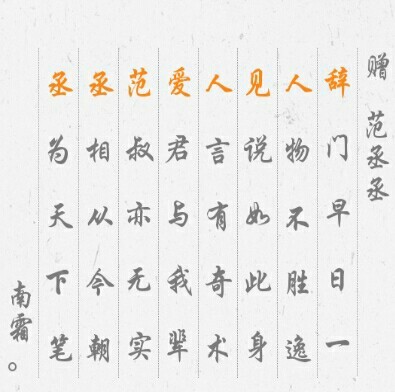 赠 范丞丞
辞门早日一
人物不胜逸
见说如此身
人言有奇术
爱君与我辈
范叔亦无实
丞相从今朝
丞为天下笔
南霜。